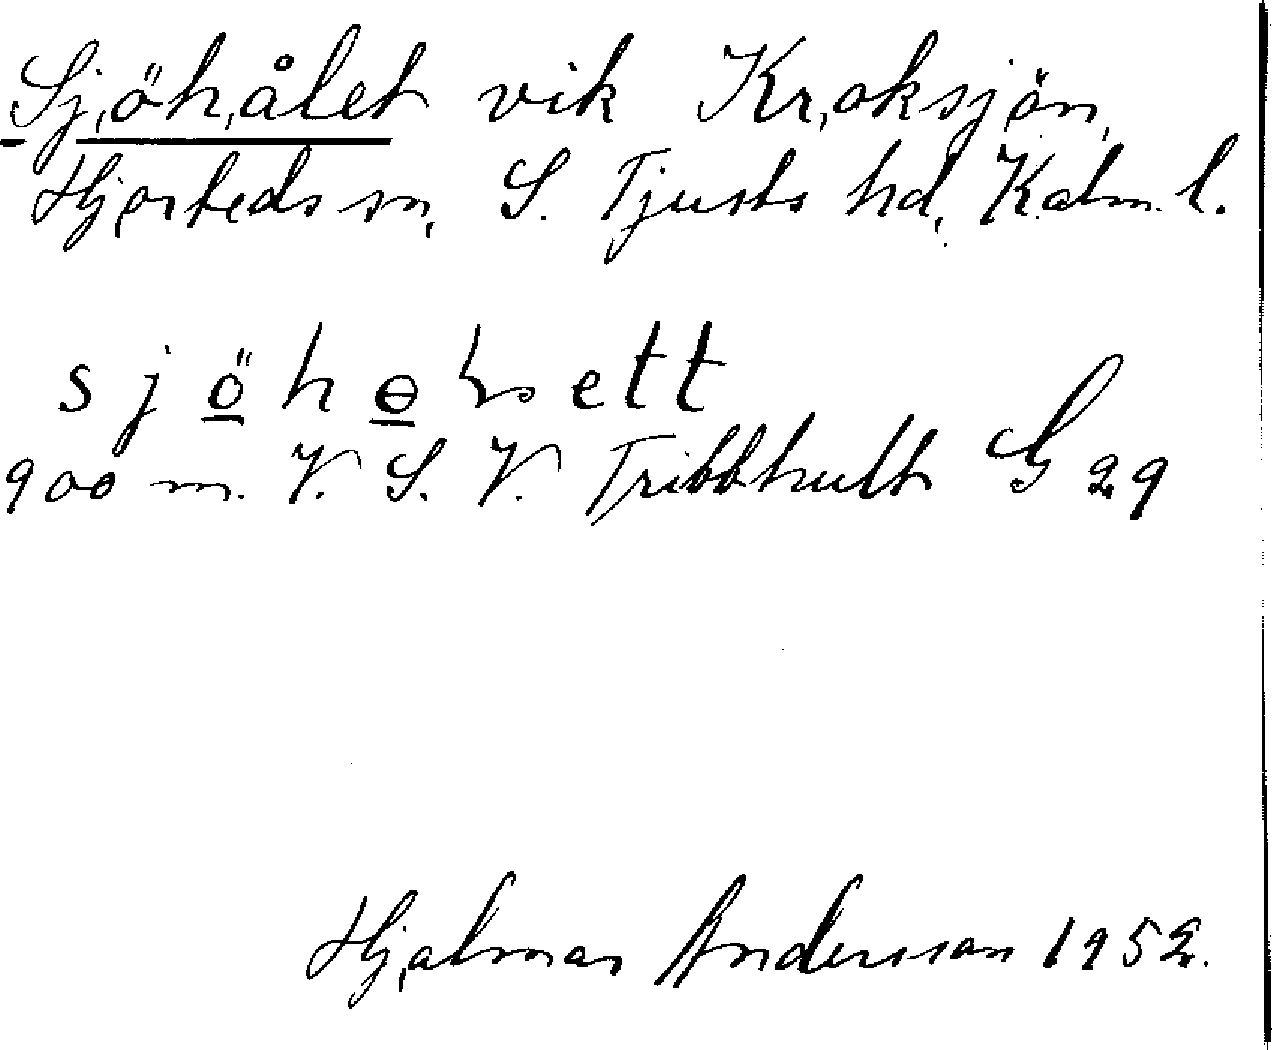 Sjöhålet vik Kroksjön,
Hjorteds sn, S. Tjusts hd, Kalm. l.
900 m. V. S. V. Tribbhult G 29
Hjalmar Andersson 1952.